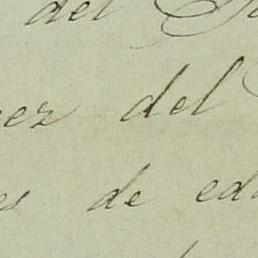 del
ez del
es de ed